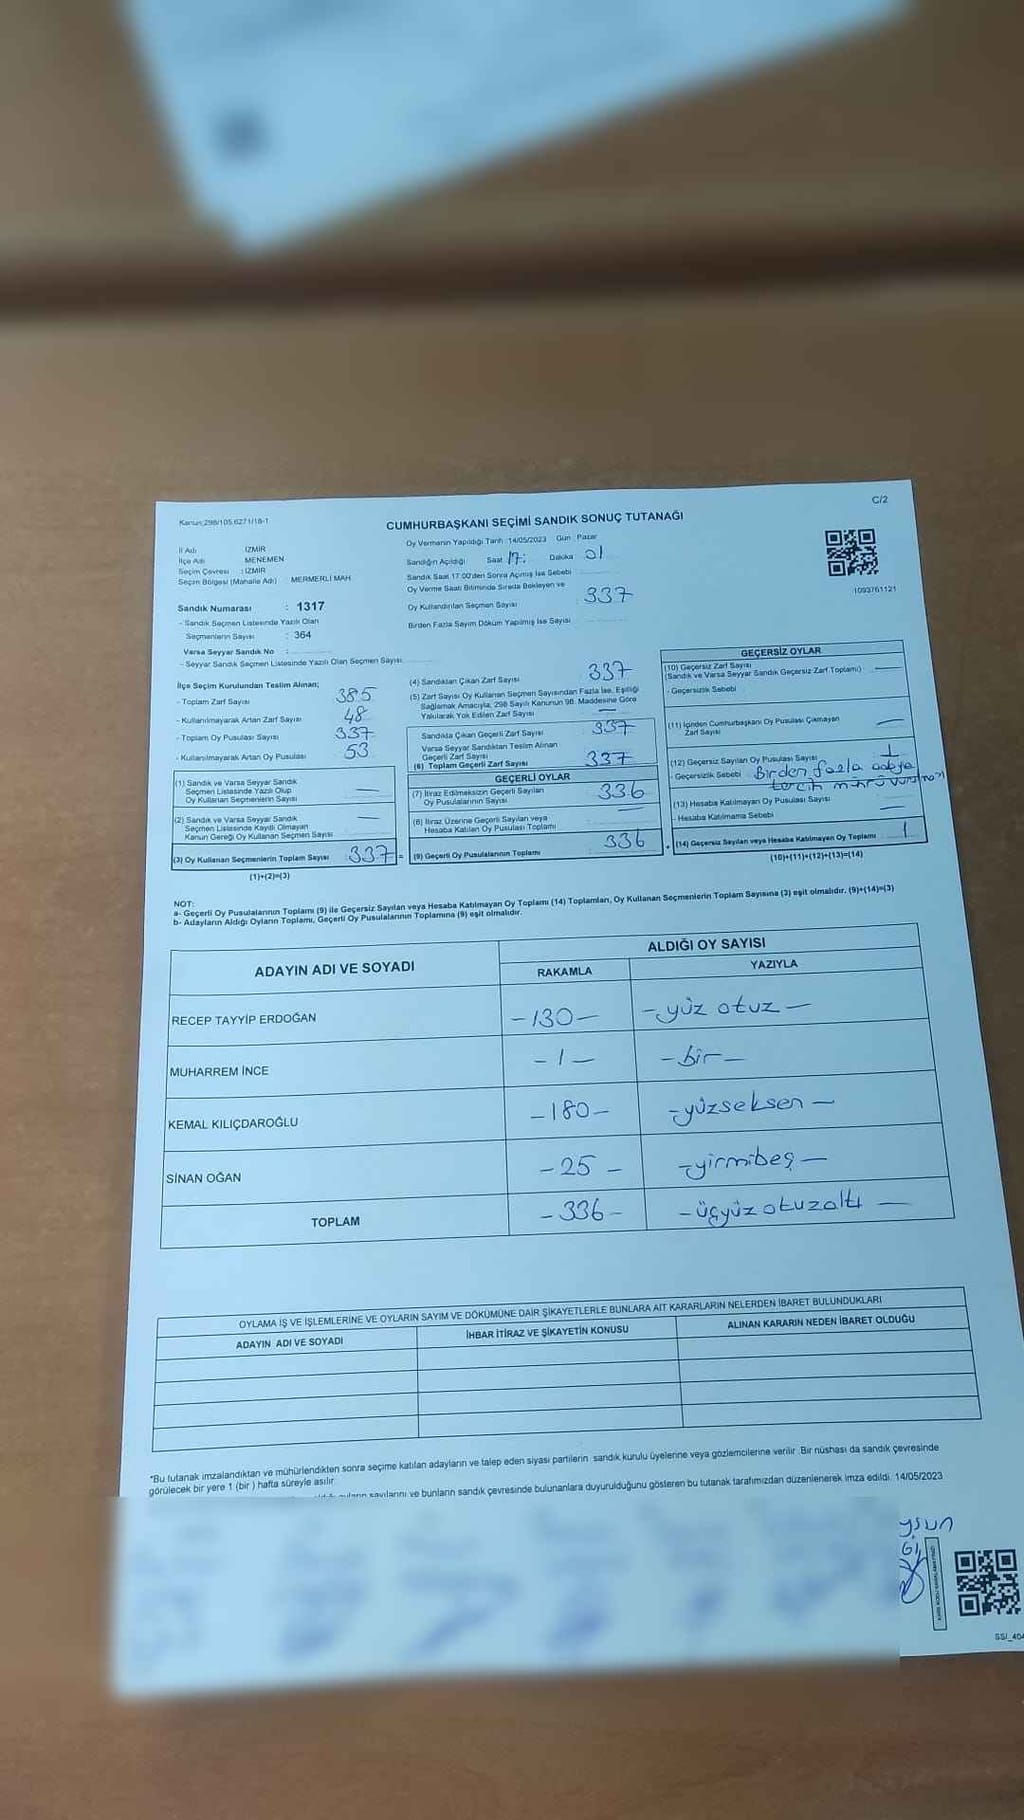 C/2
Kanun:298/105,6271/18-1
CUMHURBAŞKANI SEÇİMİ SANDIK SONUÇ TUTANAĞI
İl Adı : İZMİR
İlçe Adı : MENEMEN
Seçim Çevresi : İZMİR
Seçim Bölgesi (Mahalle Adı) MERMERLİ MAH
Sandık Numarası : 1317
- Sandık Seçmen Listesinde Yazılı Olan
Seçmenlerin Sayısı : 364
Varsa Seyyar Sandık No :
- Seyyar Sandık Seçmen Listesinde Yazılı Olan Seçmen Sayısı
Oy Vermenin Yapıldığı Tarih :14/05/2023 Gün : Pazar
Sandığın Açıldığı Saat 17: Dakika 01
Sandık Saat 17.00'den Sonra Açılmış İse Sebebi
Oy Verme Saati Bitiminde Sırada Bekleyen ve
Oy Kullandırılan Seçmen Sayısı 337
Birden Fazla Sayım Döküm Yapılmış İse Sayısı
1093761121
İlçe Seçim Kurulundan Teslim Alınan;
- Toplam Zarf Sayısı 385
- Kullanılmayarak Artan Zarf Sayısı 48
- Toplam Oy Pusulası Sayısı 337
- Kullanılmayarak Artan Oy Pusulası 53
(1) Sandık ve Varsa Seyyar Sandık
Seçmen Listesinde Yazılı Olup
Oy Kullanan Seçmenlerin Sayısı —
(2) Sandık ve Varsa Seyyar Sandık
Seçmen Listesinde Kayıtlı Olmayan
Kanun Gereği Oy Kullanan Seçmen Sayısı —
(3) Oy Kullanan Seçmenlerin Toplam Sayısı 337 =
(1)+(2)=(3)
(4) Sandıktan Çıkan Zarf Sayısı 337
(5) Zarf Sayısı Oy Kullanan Seçmen Sayısından Fazla İse, Eşitliği
Sağlamak Amacıyla; 298 Sayılı Kanunun 98. Maddesine Göre
Yakılarak Yok Edilen Zarf Sayısı —
Sandıkta Çıkan Geçerli Zarf Sayısı 337
Varsa Seyyar Sandıktan Teslim Alınan
Geçerli Zarf Sayısı
(6) Toplam Geçerli Zarf Sayısı 337
GEÇERLİ OYLAR
(7) İtiraz Edilmeksizin Geçerli Sayılan
Oy Pusulalarının Sayısı 336
(8) İtiraz Üzerine Geçerli Sayılan veya
Hesaba Katılan Oy Pusulası Toplamı —
(9) Geçerli Oy Pusulalarının Toplamı 336 +
GEÇERSİZ OYLAR
(10) Geçersiz Zarf Sayısı
(Sandık ve Varsa Seyyar Sandık Geçersiz Zarf Toplamı) —
- Geçersizlik Sebebi
(11) İçinden Cumhurbaşkanı Oy Pusulası Çıkmayan
Zarf Sayısı —
(12) Geçersiz Sayılan Oy Pusulası Sayısı 1
- Geçersizlik Sebebi Birden fazla adaya
tercih mührü
(13) Hesaba Katılmayan Oy Pusulası Sayısı —
- Hesaba Katılmama Sebebi
(14) Geçersiz Sayılan veya Hesaba Katılmayan Oy Toplamı 1
(10)+(11)+(12)+(13)=(14)
NOT:
a- Geçerli Oy Pusulalarının Toplamı (9) ile Geçersiz Sayılan veya Hesaba Katılmayan Oy Toplamı (14) Toplamları, Oy Kullanan Seçmenlerin Toplam Sayısına (3) eşit olmalıdır. (9)+(14)=(3)
b- Adayların Aldığı Oyların Toplamı, Geçerli Oy Pusulalarının Toplamına (9) eşit olmalıdır.
ADAYIN ADI VE SOYADI
ALDIĞI OY SAYISI
RAKAMLA YAZIYLA
RECEP TAYYİP ERDOĞAN -130- -yüz otuz-
MUHARREM İNCE -1- -bir-
KEMAL KILIÇDAROĞLU -180- -yüzseksen-
SİNAN OĞAN -25- -yirmibeş-
TOPLAM -336- -üçyüz otuzaltı-
OYLAMA İŞ VE İŞLEMLERİNE VE OYLARIN SAYIM VE DÖKÜMÜNE DAİR ŞİKAYETLERLE BUNLARA AİT KARARLARIN NELERDEN İBARET BULUNDUKLARI
ADAYIN ADI VE SOYADI İHBAR İTİRAZ VE ŞİKAYETİN KONUSU ALINAN KARARIN NEDEN İBARET OLDUĞU
*Bu tutanak imzalandıktan ve mühürlendikten sonra seçime katılan adayların ve talep eden siyasi partilerin sandık kurulu üyelerine veya gözlemcilerine verilir. Bir nüshası da sandık çevresinde
görülecek bir yere 1 (bir ) hafta süreyle asılır.
sayılarını ve bunların sandık çevresinde bulunanlara duyurulduğunu gösteren bu tutanak tarafımızdan düzenlenerek imza edildi. 14/05/2023